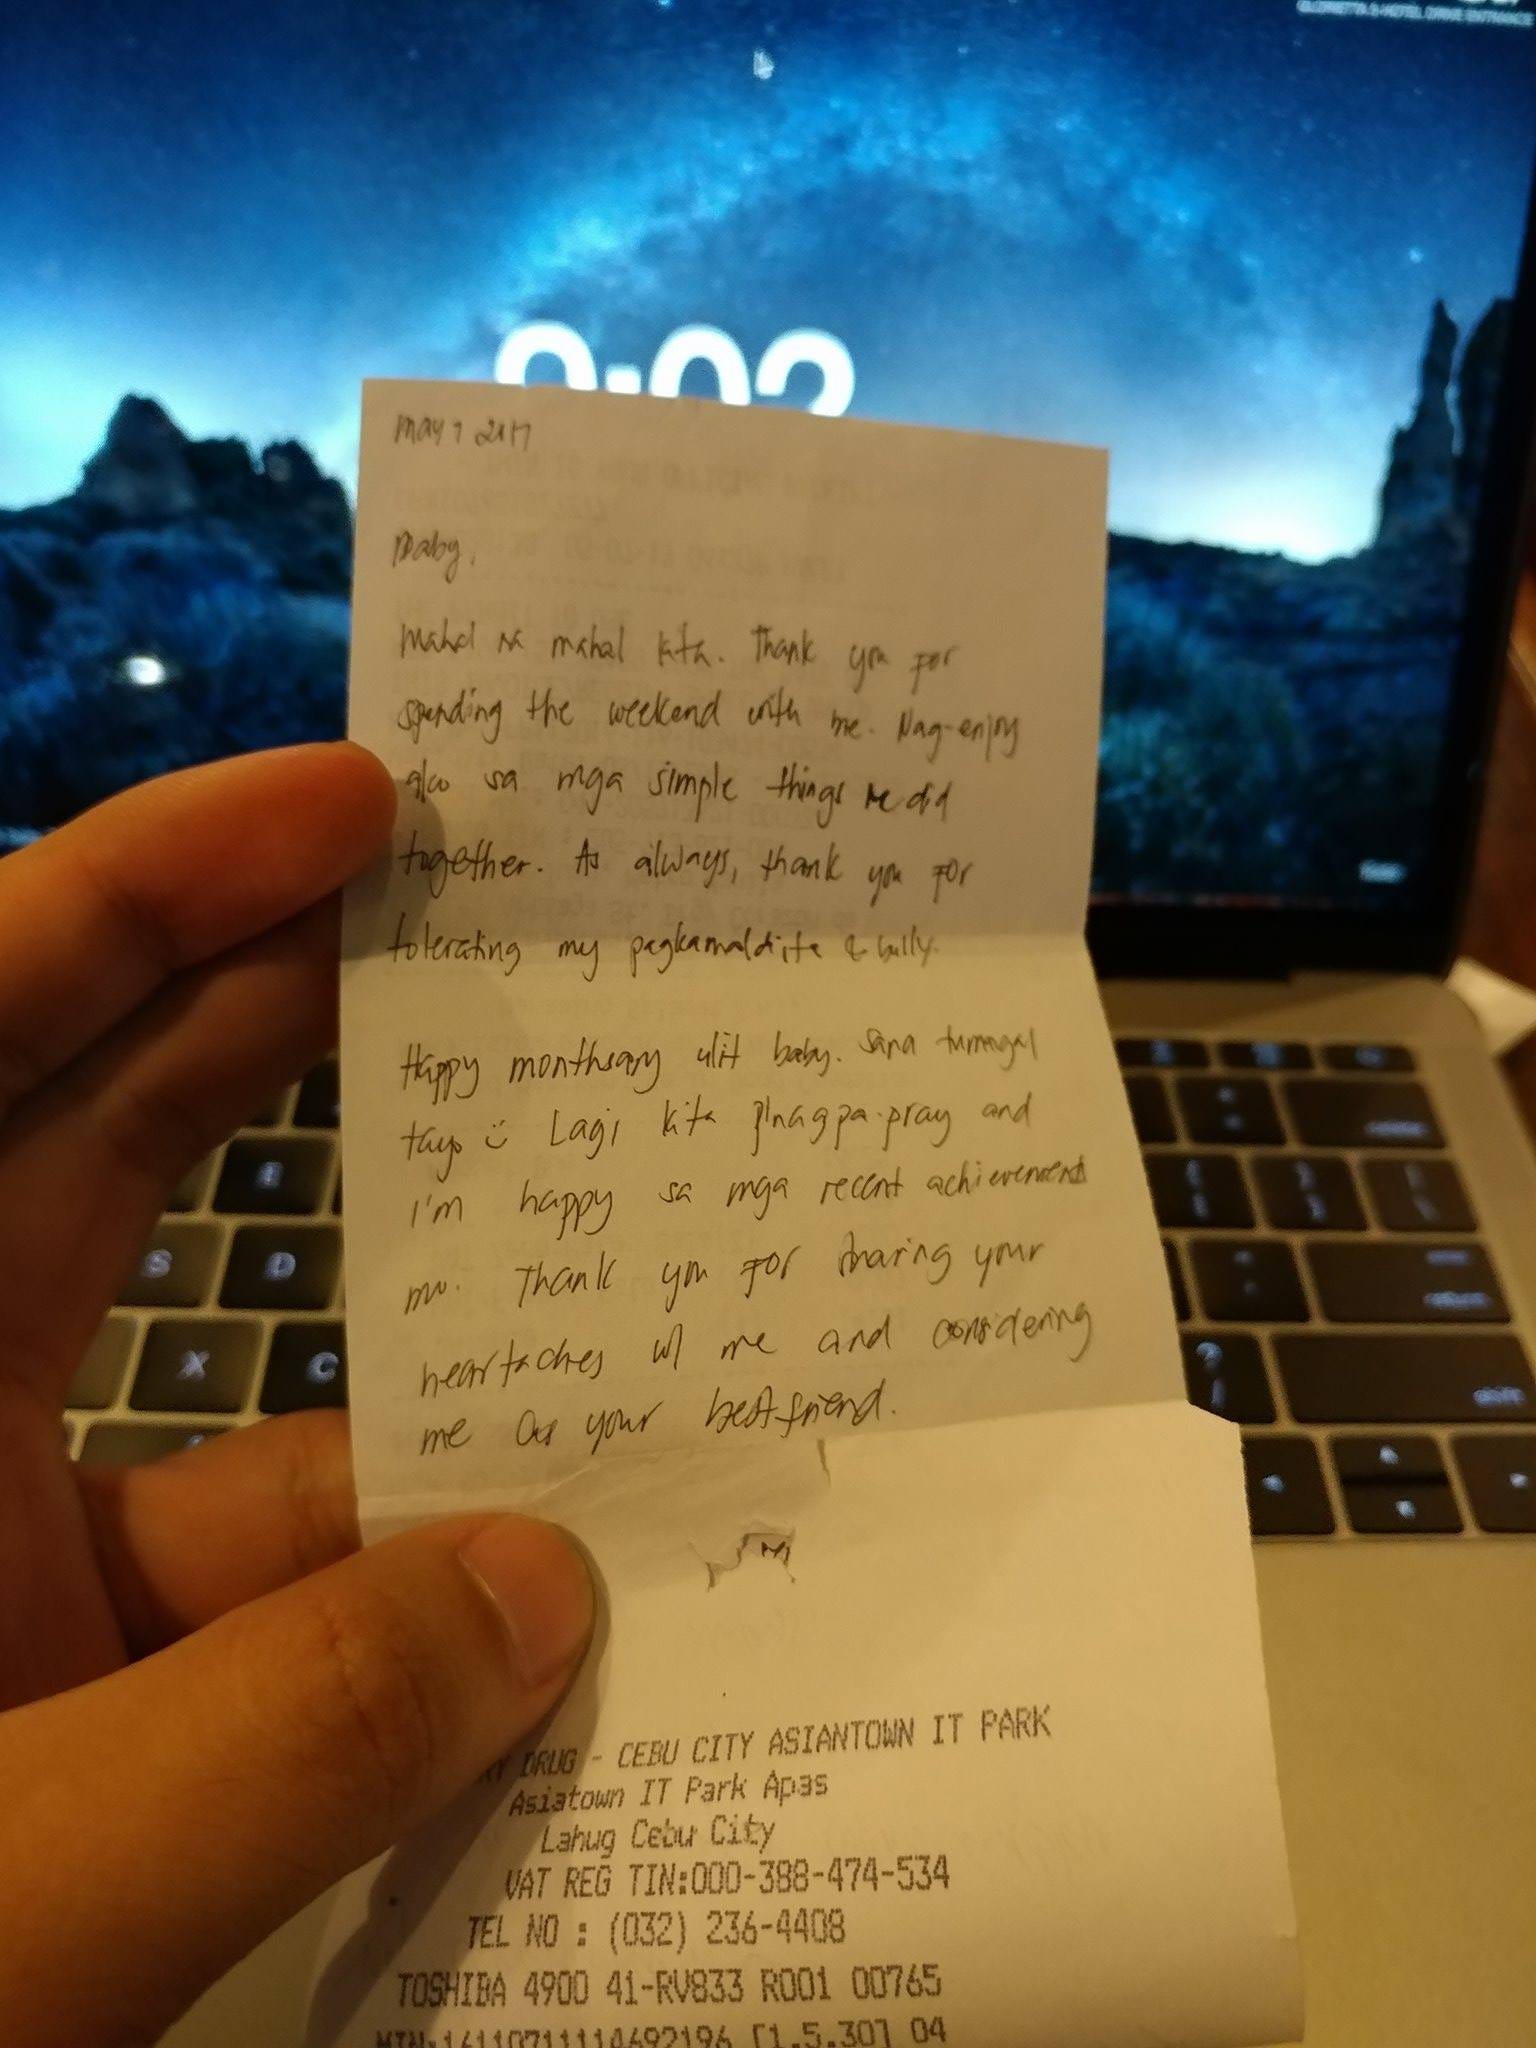 GLORIETTA 5-HOTEL DRIVE ENTRANCE
:02
May 7 2017
Baby,
Mahal na mahal kita. Thank you for
spending the weekend with me. Nag-enjoy
ako sa mga simple things we did
together. As always, thank you for
tolerating my pagkamaldita & bully.
Happy monthsary ulit baby. Sana tumagal
tayo :) Lagi kita pinagpa-pray and
I'm happy sa mga recent achievements
mo. Thank you for sharing your
heartaches w/ me and considering
me as your bestfriend.
RY DRUG - CEBU CITY ASIANTOWN IT PARK
Asiatown IT Park Apas
Lahug Cebu City
VAT REG TIN:000-388-474-534
TEL NO : (032) 236-4408
TOSHIBA 4900 41-RV833 R001 00765
MIN:16110711114692196 [1.5.30] 04
S D
X C
return
shift